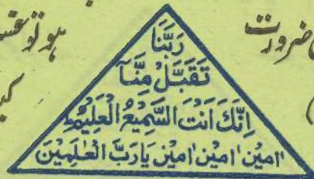 ضرورت
ہو تو
رَبَّنَا
تَقَبَّلْ مِنَّا
اِنَّكَ اَنْتَ السَّمِيْعُ الْعَلِيْمُ
اٰمِيْن اٰمِيْن اٰمِيْن يَارَبَّ الْعٰلَمِيْنَ